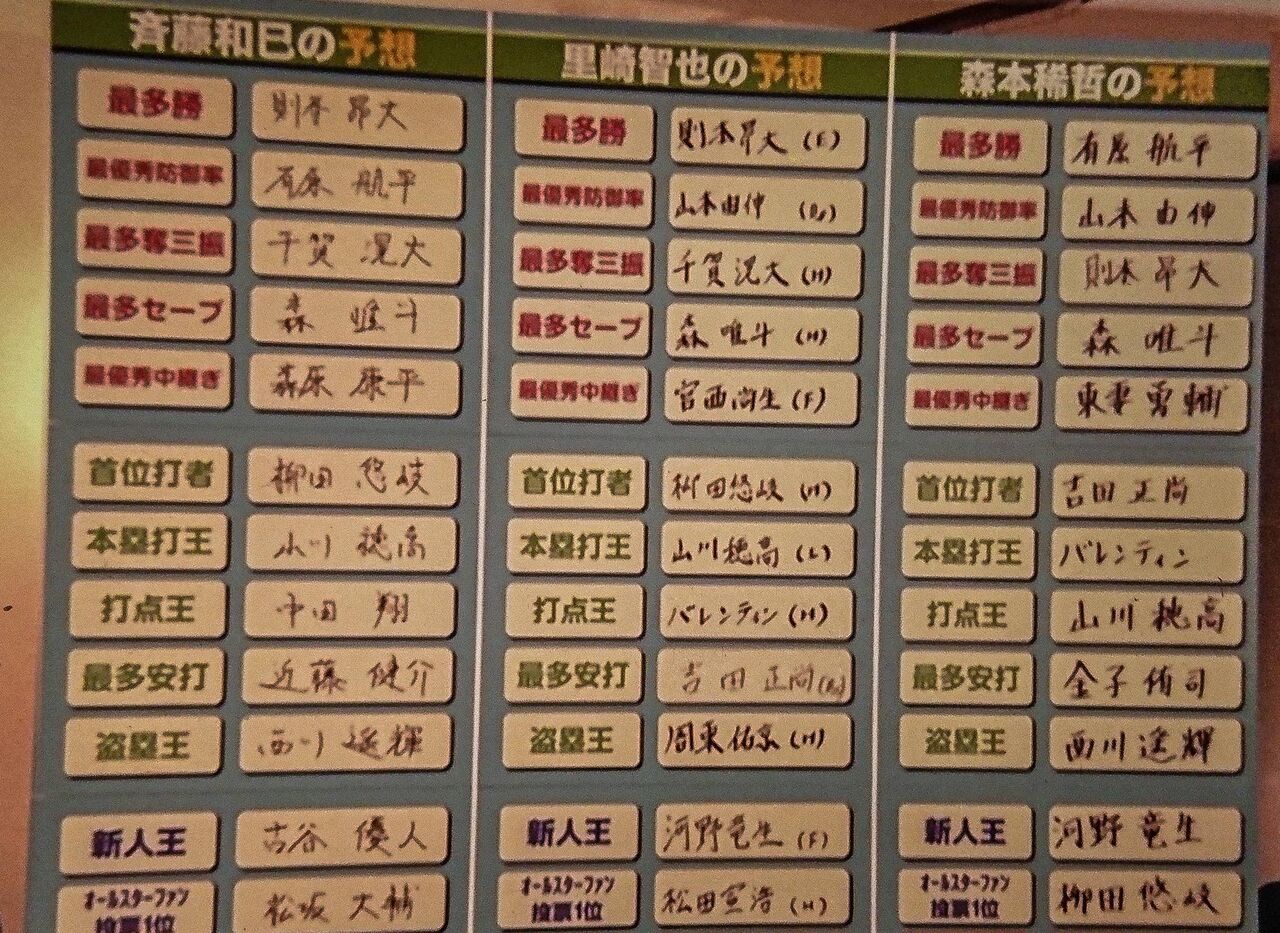 斉藤和巳の予想
最多勝 則本昂大
最優秀防御率 有原 航平
最多奪三振 千賀 滉大
最多セーブ 森 唯斗
最優秀中継ぎ 森原 康平
首位打者 柳田 悠岐
本塁打王 山川 穂高
打点王 中田 翔
最多安打 近藤 健介
盗塁王 西川 遥輝
新人王 古谷 優人
オールスターファン投票1位 松坂 大輔
里崎智也の予想
最多勝 則本昂大 (E)
最優秀防御率 山本由伸 (Bs)
最多奪三振 千賀滉大 (H)
最多セーブ 森 唯斗 (H)
最優秀中継ぎ 宮西尚生 (F)
首位打者 柳田悠岐 (H)
本塁打王 山川穂高 (L)
打点王 バレンティン (H)
最多安打 吉田 正尚 (Bs)
盗塁王 周東佑京 (H)
新人王 河野竜生 (F)
オールスターファン投票1位 松田宣浩 (H)
森本稀哲の予想
最多勝 有原 航平
最優秀防御率 山本 由伸
最多奪三振 則本 昂大
最多セーブ 森 唯斗
最優秀中継ぎ 東妻 勇輔
首位打者 吉田 正尚
本塁打王 バレンティン
打点王 山川 穂高
最多安打 金子 侑司
盗塁王 西川 遥輝
新人王 河野 竜生
オールスターファン投票1位 柳田 悠岐